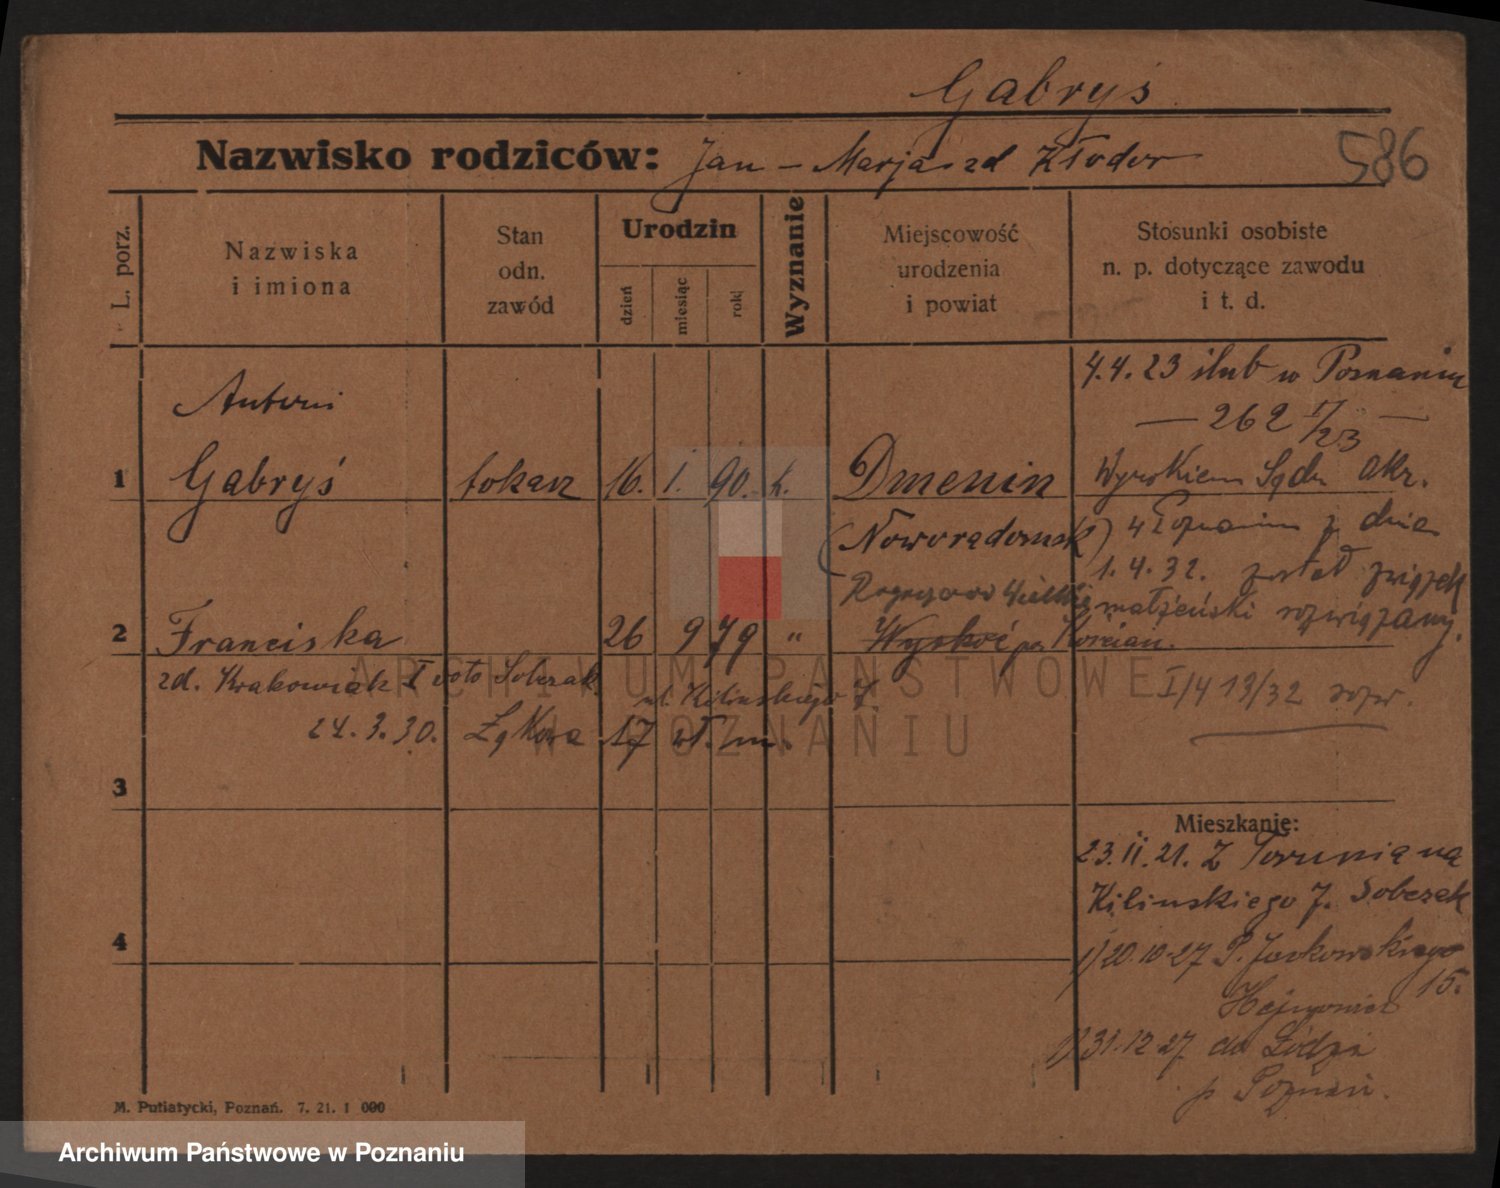 Gabryś
Nazwisko rodziców: Jan – Marja zd Kłodor
586
L. porz.
Nazwiska i imiona
Stan odn. zawód
Urodzin
dzień
miesiąc
rok
Wyznanie
Miejscowość urodzenia i powiat
Stosunki osobiste n. p. dotyczące zawodu i t. d.
Antoni
1 Gabryś tokarz 16. 1. 90. k. Dmenin
(Noworadomsk)
4.4.23 ślub w Poznaniu
— 262 /23 —
Wyrokiem Sądu Okr.
w Poznaniu z dnia
1.4.32. został związek
małżeński rozwiązany.
I/4 13/32 rozw.
Wielkie
2 Franciska 26 9 79 " Wyskoć pow. Kościan.
zd. Krakowiak I voto Sobczak
ul. Kilinskiego 7.
24.3.30. Łąkowa 17 m.
3
Mieszkanie:
23.II.21. Z Torunia na
Kilinskiego 7. Sobczak
4
1) 20.10.27 P. Jackowskiego
15.
1) 31.12.27. do Łodzi
p Poznań.
M. Putiatycki, Poznań. 7. 21. 1 000
ARCHIWUM PAŃSTWOWE
W POZNANIU
Archiwum Państwowe w Poznaniu